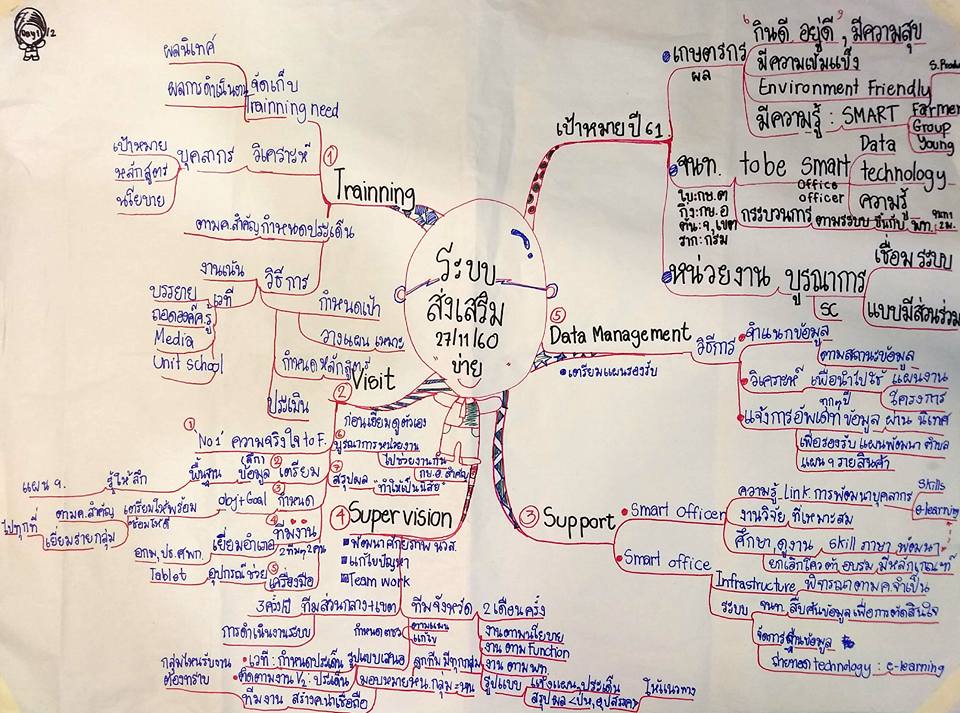 Day1/2
ระบบ
ส่งเสริม
27/11/60
ข่าย
① Trainning
ผลนิเทศ
ผลการดำเนินงาน
จัดเก็บ
Trainning need
เป้าหมาย
หลักสูตร
นโยบาย
บุคลากร
วิเคราะห์
ตามค.สำคัญ กำหนดประเด็น
วิธีการ
งานเน้น
เวที
บรรยาย
ถอดองค์ค.รู้
Media
Unit school
กำหนดเป้า
วางแผน เหมาะ
กำหนดหลักสูตร
ประเมิน
② Visit
ก่อนเยี่ยมดูตัวเอง
① "No 1" ความจริงใจ to F.
② เตรียม
ข้อมูล (ลึก)
พื้นฐาน
รู้ให้ลึก
แผน ๆ.
③ กำหนด
obj+Goal
เตรียมให้พร้อม
ซ้อมให้ดี
ตามค.สำคัญ
เยี่ยมรายกลุ่ม
ไปทุกที่
④ ทีมงาน
2 ทีมๆ 2 คน
เยี่ยมอำเภอ
อกม, ปธ.ศพก.
⑤ เครื่องมือ
อุปกรณ์ช่วย
Tablet
⑥ บูรณาการหน่วยงาน
ไปช่วยงานกัน
กษ.อ. สำคัญ
⑦ สรุปผล "ทำให้เป็นนิสัย"
③ Support
Smart Officer
ความรู้ - Link การพัฒนาบุคลากร
Skills
e-learning
งานวิจัย ที่เหมาะสม
ศึกษา, ดูงาน skill ภาษา, พัฒนา
ยกเลิกโควต้า อบรม, มีหลักเกณฑ์
Smart office
Infrastructure พิจารณาตามค.จำเป็น
ระบบ
จนท. สืบค้นข้อมูลเพื่อการตัดสินใจ
จัดการฐานข้อมูล
ถ่ายทอด technology : e-learning
④ Super vision
พัฒนาศักยภาพ นวส.
แก้ไขปัญหา
Team work
3 ครั้ง/ปี ทีมส่วนกลาง+เขต
การดำเนินงานระบบ
ทีมจังหวัด
2 เดือนครั้ง
งานตามนโยบาย
งานตาม Function
งาน ตามพท.
กำหนดตชว
ตามแผน
แก้ไข
รูปแบบเสนอ
ลูกทีม มีทุกกลุ่ม
เวที : กำหนดประเด็น
กลุ่มไหนรับงาน
ต้องทราบ
ติดตามงาน 1/2 : ประเด็น
ทีมงาน สร้างค.น่าเชื่อถือ
มอบหมายหน.กลุ่ม
รูปแบบ
แจ้งแผน, ประเด็น
สรุปผล <ปัญหา, อุปสรรค>
ให้แนวทาง
⑤ Data Management
เตรียมแผนรองรับ
วิธีการ
จำแนกข้อมูล
ตามสถานะข้อมูล
วิเคราะห์ เพื่อนำไปใช้
แผนงาน
โครงการ
ทุกๆปี
แจ้งการอัพเดทข้อมูล ผ่าน นิเทศ
เพื่อรองรับ แผนพัฒนา ตำบล
แผน ๆ รายสินค้า
เป้าหมาย ปี 61
เกษตรกร
ผล
"กินดี อยู่ดี", มีความสุข
มีความเข้มแข็ง
Environment Friendly
มีความรู้ : SMART
Farmer
Group
Young
จนท. to be smart
Office
officer
Data
technology
ความรู้
ใบ:กษ.ต
กิ่ง:กษ.อ
ต้น:จ,เขต
ราก:กรม
กระบวนการ ตามระบบ
หน่วยงาน
บูรณาการ
SC
เชื่อม ระบบ
แบบมีส่วนร่วม